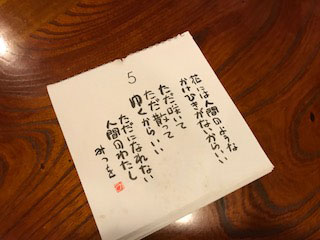 5
花には人間のような
かけひきがないからいい
ただ咲いて
ただ散って
ゆくからいい
ただになれない
人間のわたし
みつを